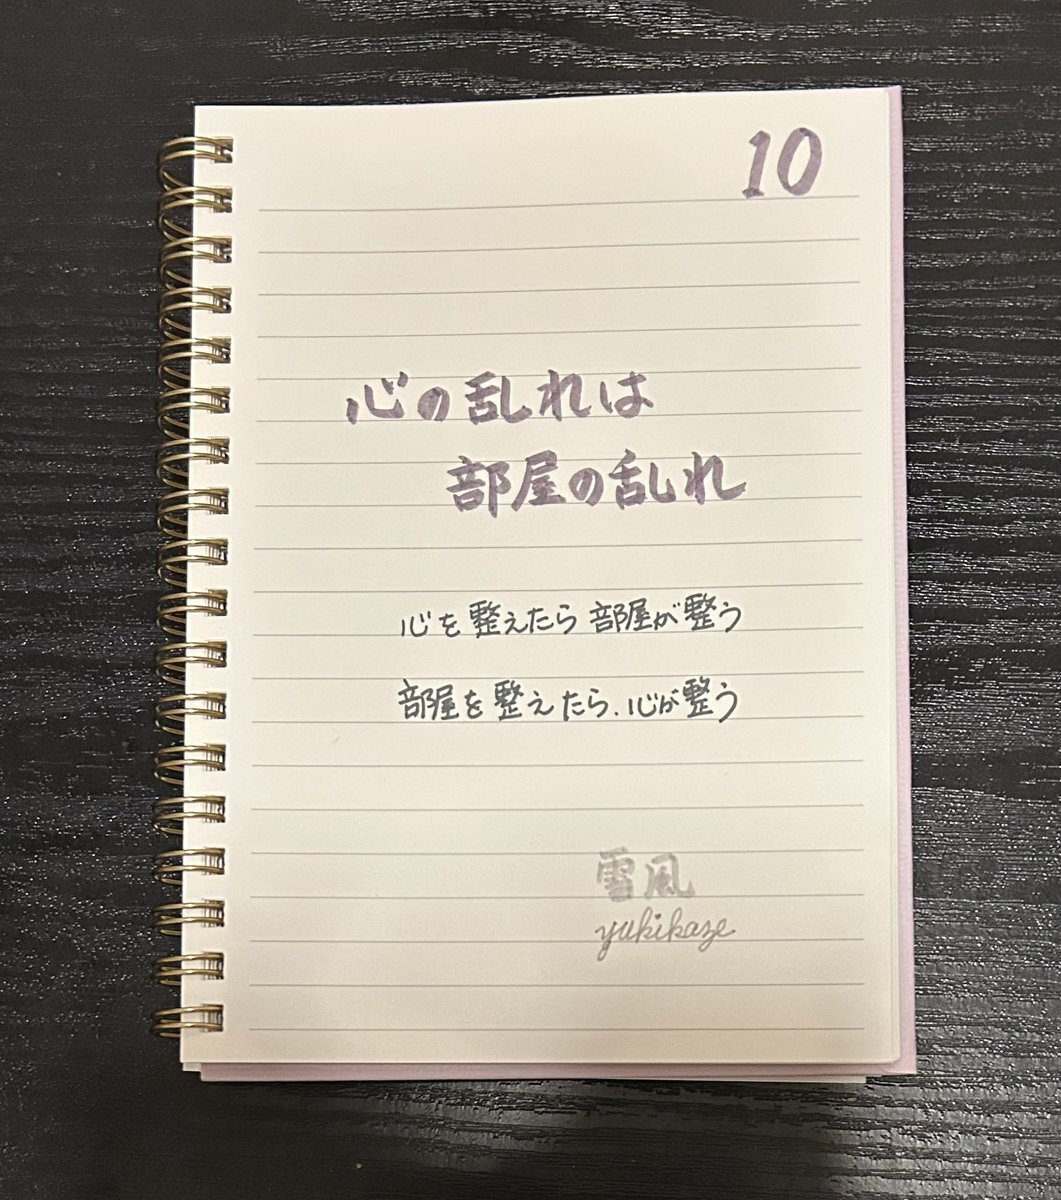 10
心の乱れは
部屋の乱れ
心を整えたら部屋が整う
部屋を整えたら、心が整う
雪風
yukikaze